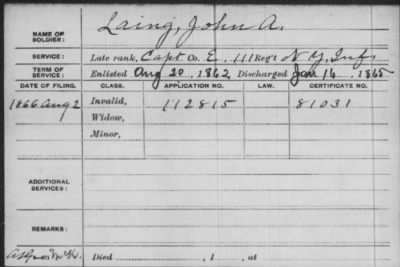 NAME OF SOLDIER: Laing, John A.
SERVICE: Late rank, Capt Co. E, 111 Reg't N.Y. Inf.
TERM OF SERVICE: Enlisted Aug 20, 1862 Discharged Jan 14, 1865
DATE OF FILING. CLASS. APPLICATION NO. LAW. CERTIFICATE NO.
1866 Aug 2 Invalid, 112815 81031
Widow,
Minor,
ADDITIONAL SERVICES:
REMARKS:
Died , 1 , at